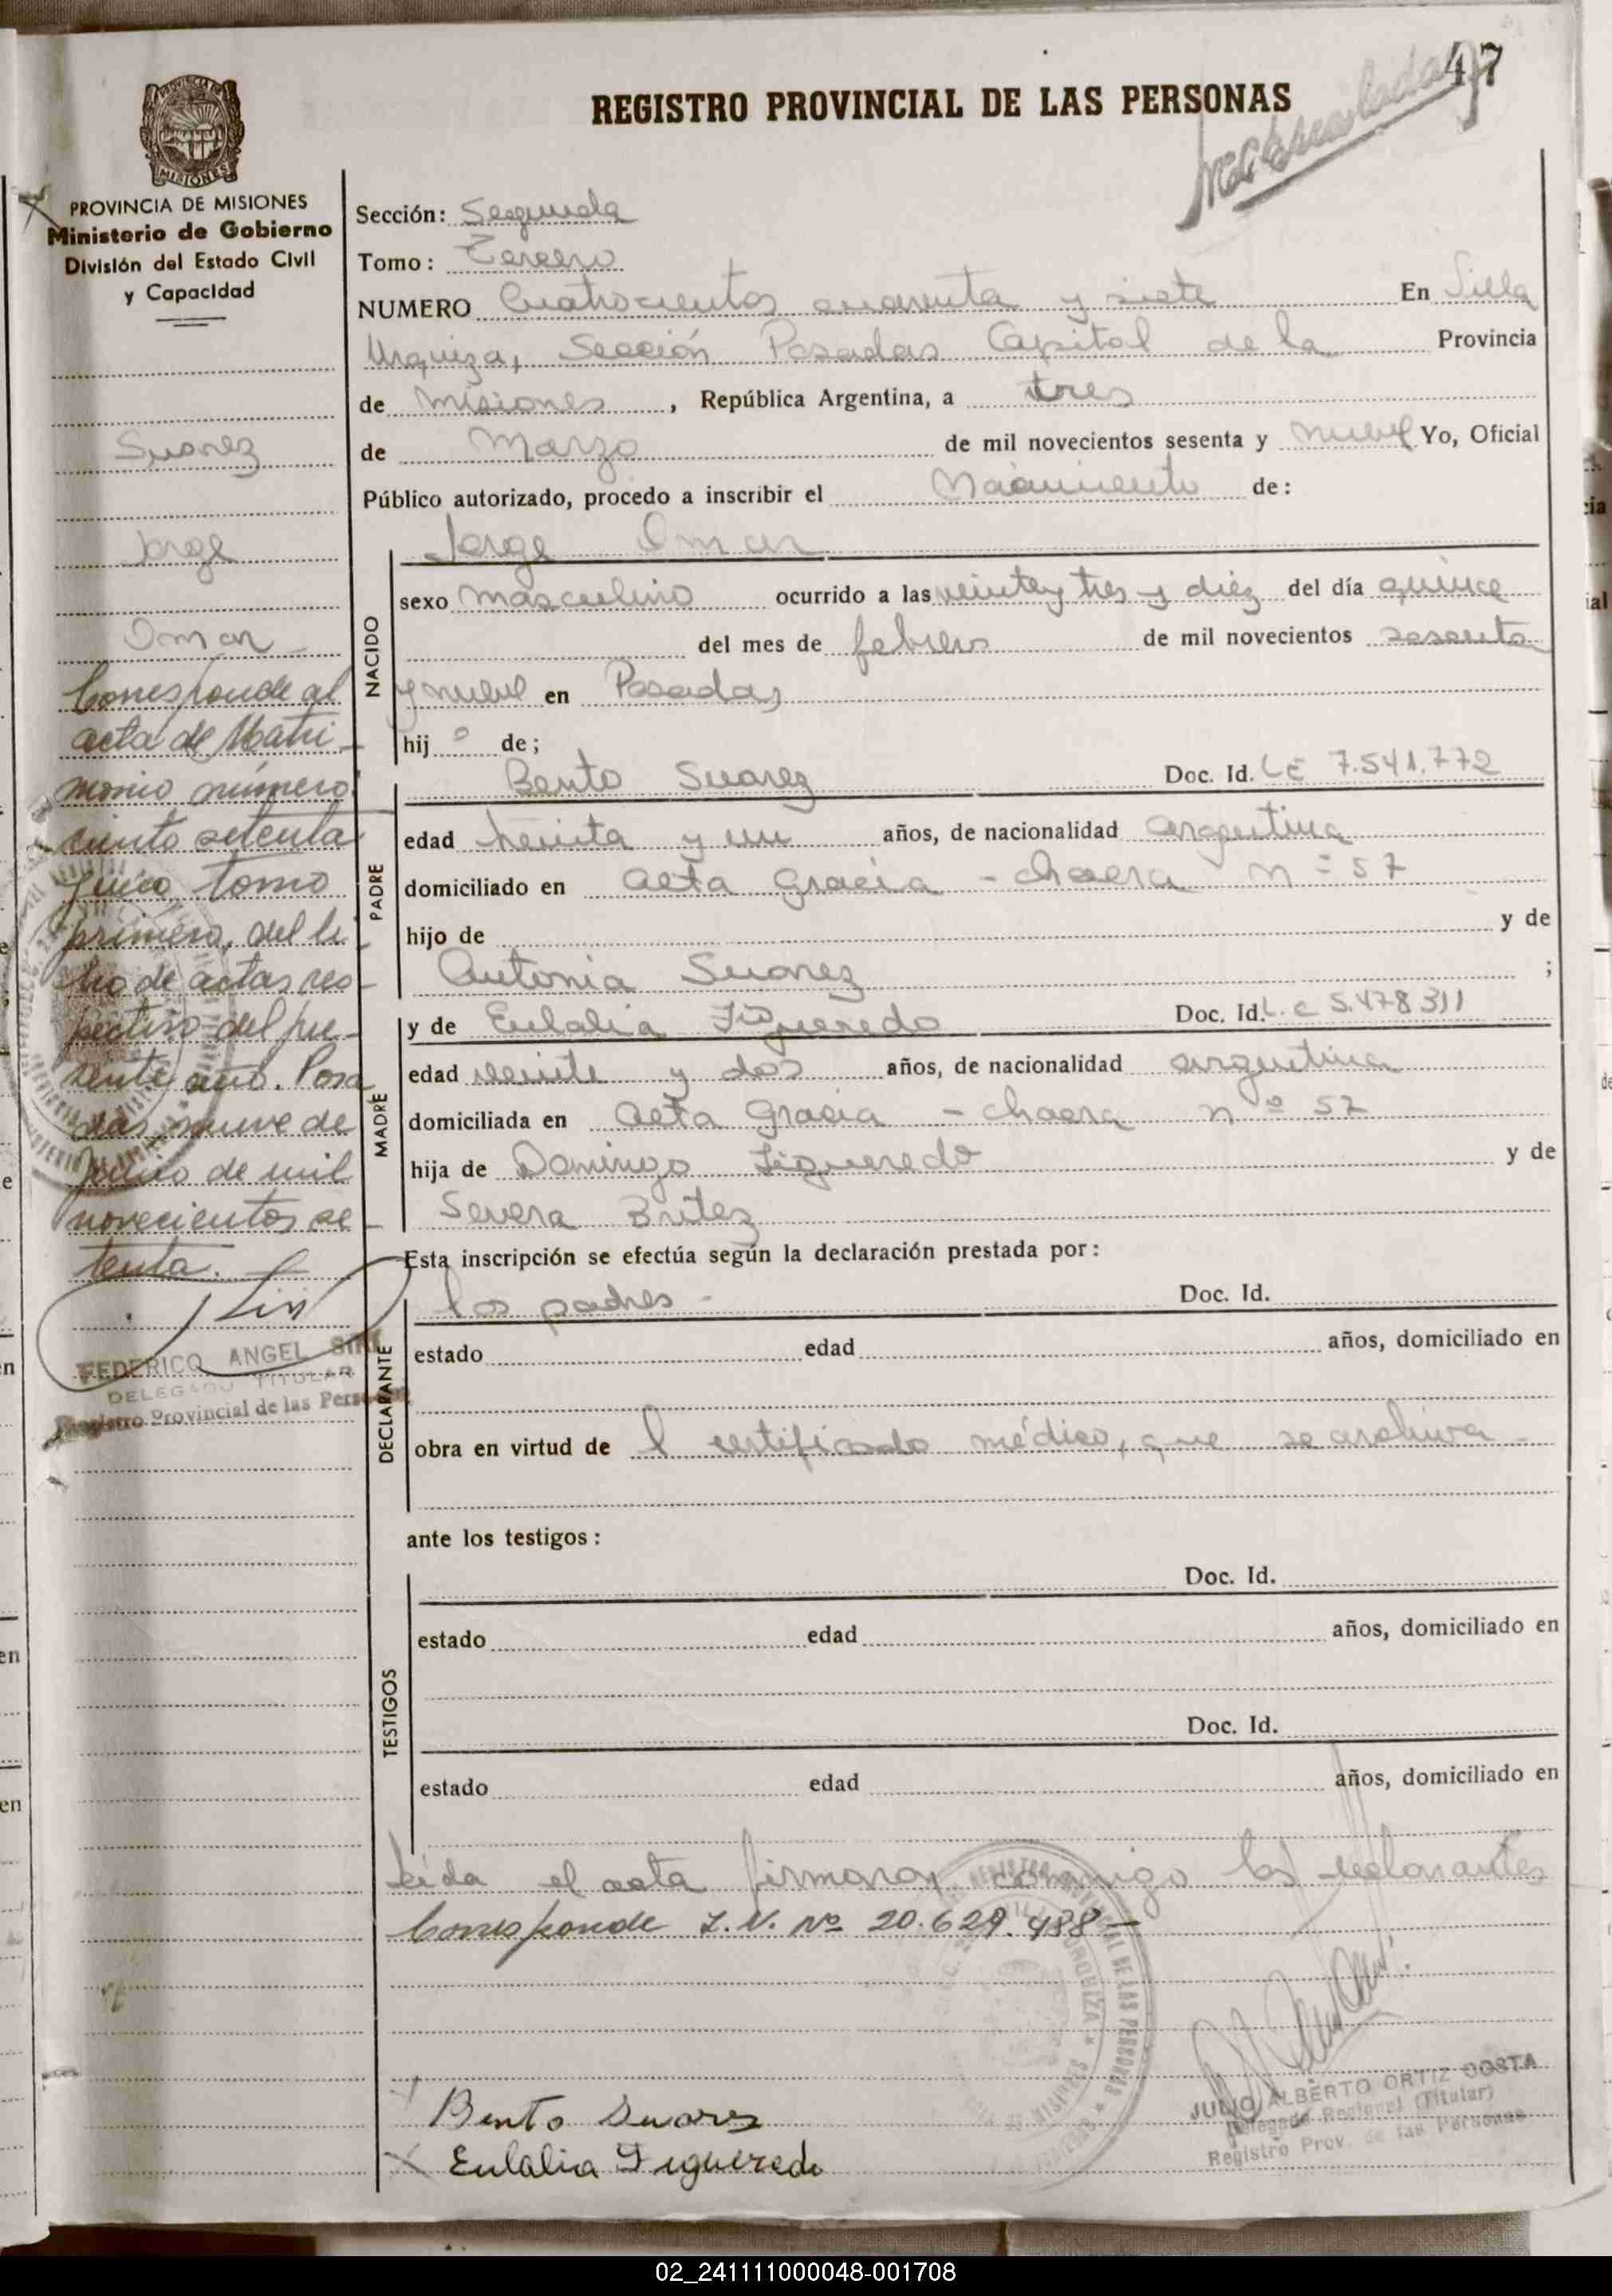 47
Matriculado
REGISTRO PROVINCIAL DE LAS PERSONAS
MISIONES
PROVINCIA DE MISIONES
Ministerio de Gobierno
División del Estado Civil
y Capacidad
Suarez
Jorge
Omar
Corresponde al
acta de Matri-
monio número
ciento setenta
tomo
primero, del li-
bro de actas res-
pectivo del pre-
sente año. Posa
das, nueve de
de mil
novecientos se-
tenta.
FEDERICO ANGEL
DELEGADO TITULAR
Registro Provincial de las Personas
Sección: Segunda
Tomo: Tercero
NUMERO Cuatrocientos cuarenta y siete En Villa
Urquiza, Sección Posadas Capital de la Provincia
de Misiones, República Argentina, a tres
de Marzo de mil novecientos sesenta y nueve Yo, Oficial
Público autorizado, procedo a inscribir el Nacimiento de:
Jorge Omar
NACIDO
sexo masculino ocurrido a las veinte y tres y diez del día quince
del mes de febrero de mil novecientos sesenta
y nueve en Posadas
hijo de;
PADRE
Bento Suarez Doc. Id. LE 7.541.772
edad treinta y un años, de nacionalidad argentina
domiciliado en Alta Gracia - chacra n= 57
hijo de y de
Antonia Suarez ;
MADRE
y de Eulalia Figueredo Doc. Id. L.C 5.478311
edad veinte y dos años, de nacionalidad argentina
domiciliada en Alta Gracia - chacra nº 57
hija de Domingo Figueredo y de
Severa Britez
Esta inscripción se efectúa según la declaración prestada por:
DECLARANTE
los padres - Doc. Id.
estado edad años, domiciliado en
obra en virtud de l certificado médico, que se archiva -
ante los testigos:
TESTIGOS
Doc. Id.
estado edad años, domiciliado en
Doc. Id.
estado edad años, domiciliado en
Leída el acta firmaron conmigo los declarantes
Corresponde I.N. Nº 20.629.488 -
Bento Suarez
Eulalia Figueredo
JULIO ALBERTO ORTIZ COSTA
Delegado Regional (Titular)
Registro Prov. de las Personas
02_241111000048-001708